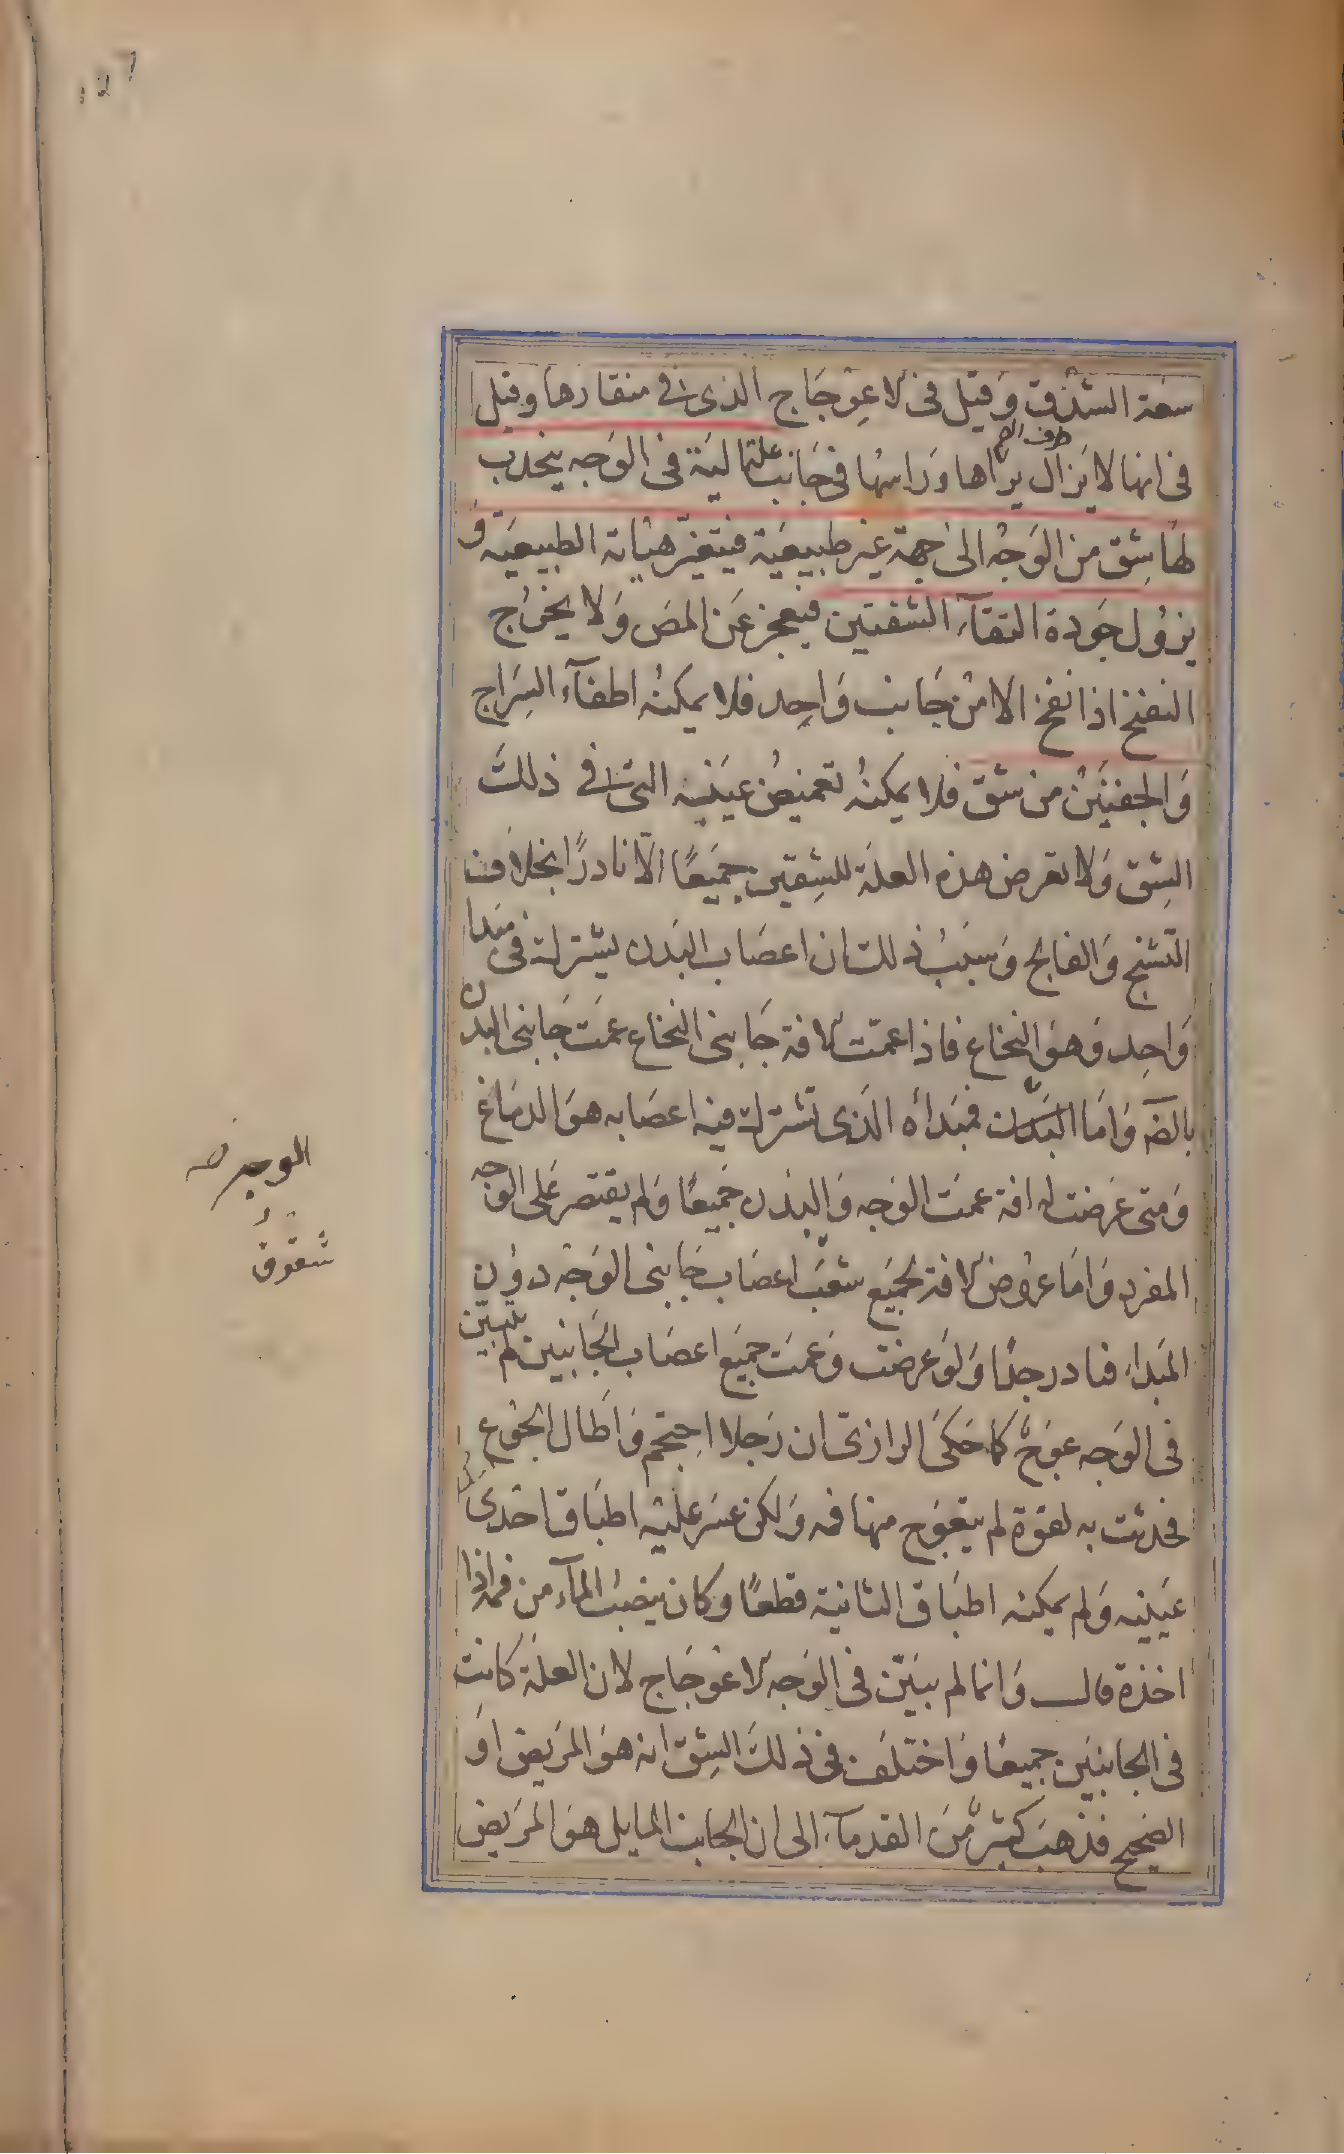 سعة الشدق وقيل في الاعوجاج الذى في منقارها وقيل
في انها لا يزال يراها وراسها في جانب علة الية في الوجه ينجذب
لها شق من الوجه الى جهة غير طبيعية فيتغير هياته الطبيعية و
يزول جودة التقاء الشفتين فيعجز عن المص ولا يخرج
النفخ اذا نفخ الا من جانب واحد فلا يمكنه اطفآء السراج
والجفنين من شق فلا يمكنه تغميض عينيه التى في ذلك
الشق ولا تعرض هذه العلة للشقين جميعا الا نادرا بخلاف
التشنج والفالج وسبب ذلك ان اعصاب البدن يشترك في مبدا
واحد وهو النخاع فاذا عمت الافة جانبى النخاع عمت جانبى البدن
واما البدن فمبداه الذى تشترك فيه اعصابه هو الدماغ
ومتى عرضت له افة عمت الوجه والبدن جميعا ولم يقتصر على الوجه
المفرد واما عروض الافة لجميع شعب اعصاب جانبى الوجه دون
المبداء فنادر جدا ولو عرضت وعمت جميع اعصاب الجانبين لم يتبين
في الوجه عوج كما حكى الرازى ان رجلا احتجم واطال الجوع
فحدثت به لقوة لم يتعوج منها فمه ولكن عسر عليه اطباق احدى
عينيه ولم يمكنه اطباق الثانية قطعا وكان ينصب المآء من فمه اذا
اخذه قال وانما لم يبين في الوجه الاعوجاج لان العلة كانت
في الجانبين جميعا واختلف في ذلك الشق انه هو المريض او
الصحيح فذهب كثير من القدمآء الى ان الجانب المايل هو المريض
الوجه
شقوق